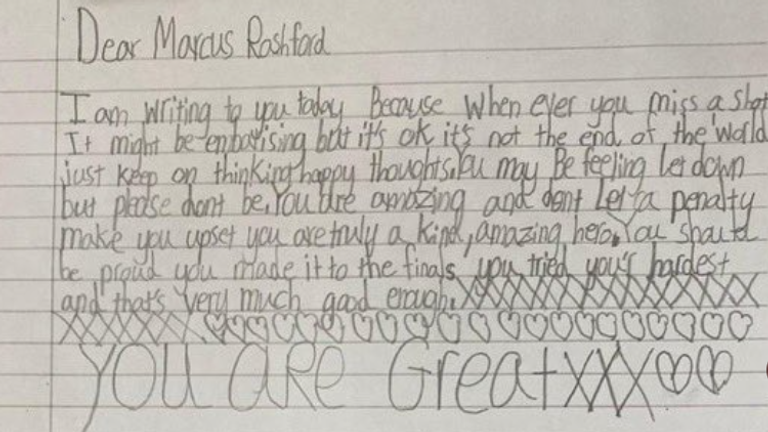 Dear Marcus Rashford
I am writing to you today Because when ever you miss a shot
It might be embarising but it's ok it's not the end of the world
just keep on thinking happy thoughts. You may Be feeling let down
but please dont be. You are amazing and dont Let a penalty
make you upset you are truly a kind, amazing hero. You should
be proud you made it to the finals you tried your's hardest
and that's very much good enough. XXXXXXXXXXXXX
XXXXXXX ♡♡♡♡♡♡♡♡♡♡♡♡♡♡♡♡♡♡♡♡
YOU aRe GreatXXX♡♡